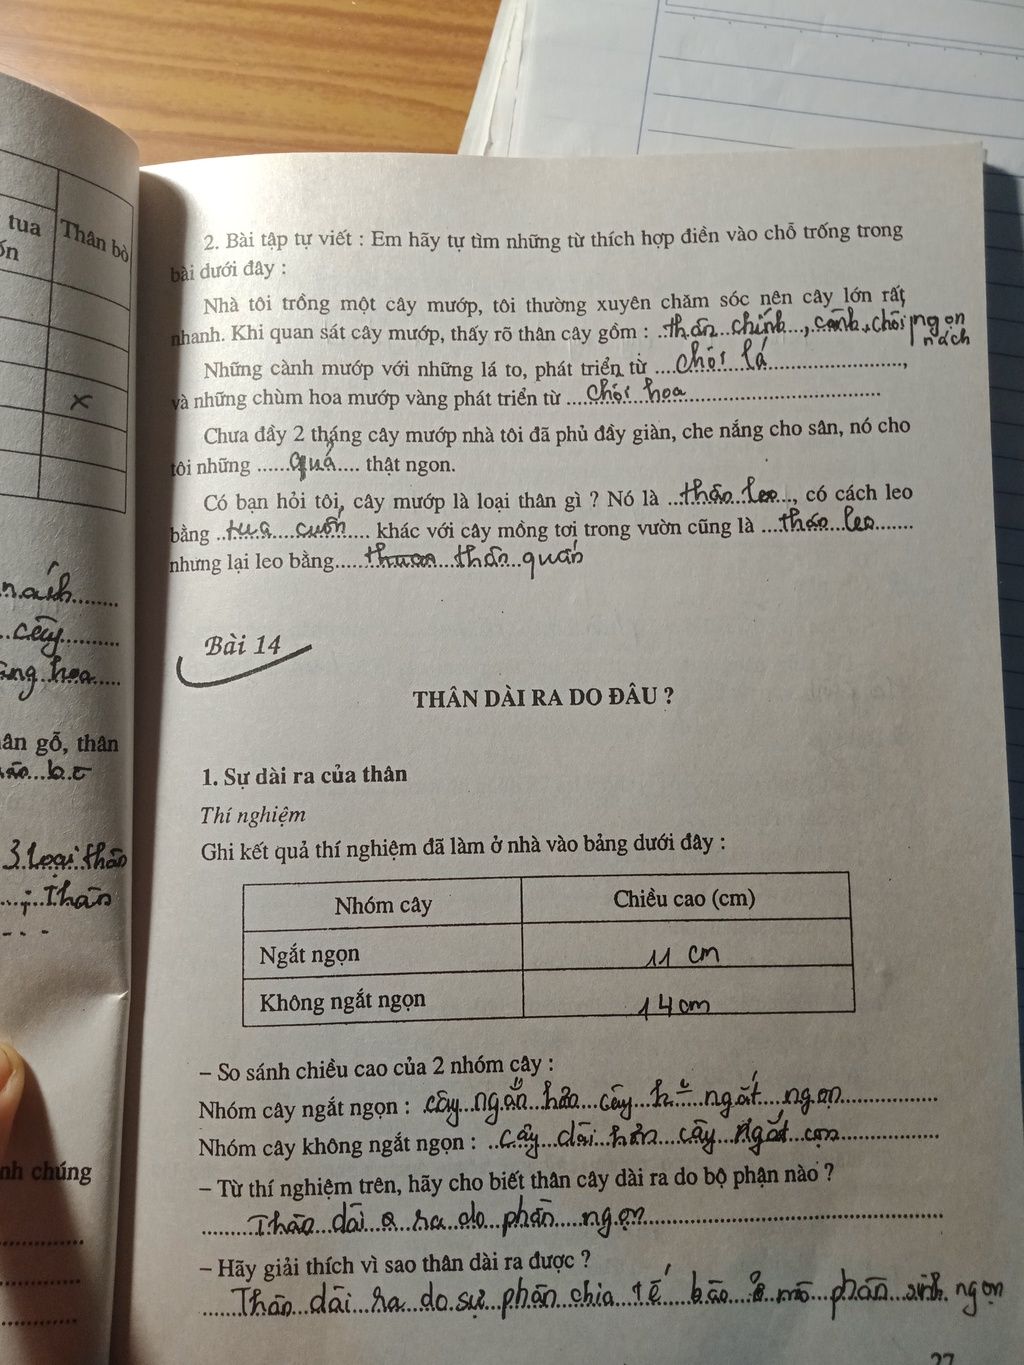 tua
ốn
Thân bò
x
nách
cây
ang hoa
ân gỗ, thân
bò
3. Loại thân
; Thân
nh chúng
2. Bài tập tự viết : Em hãy tự tìm những từ thích hợp điền vào chỗ trống trong
bài dưới đây :
Nhà tôi trồng một cây mướp, tôi thường xuyên chăm sóc nên cây lớn rất
nhanh. Khi quan sát cây mướp, thấy rõ thân cây gồm : thân chính, cành, chồi ngọn
nách
Những cành mướp với những lá to, phát triển từ chồi lá,
và những chùm hoa mướp vàng phát triển từ chồi hoa
Chưa đầy 2 tháng cây mướp nhà tôi đã phủ đầy giàn, che nắng cho sân, nó cho
tôi những quả thật ngon.
Có bạn hỏi tôi, cây mướp là loại thân gì ? Nó là thân leo, có cách leo
bằng tua cuốn khác với cây mồng tơi trong vườn cũng là thân leo
nhưng lại leo bằng thân quấn
Bài 14
THÂN DÀI RA DO ĐÂU ?
1. Sự dài ra của thân
Thí nghiệm
Ghi kết quả thí nghiệm đã làm ở nhà vào bảng dưới đây :
Nhóm cây Chiều cao (cm)
Ngắt ngọn 11 cm
Không ngắt ngọn 14 cm
– So sánh chiều cao của 2 nhóm cây :
Nhóm cây ngắt ngọn : cây ngắn hơn cây k ngắt ngọn
Nhóm cây không ngắt ngọn : cây dài hơn cây ngắt ọn
– Từ thí nghiệm trên, hãy cho biết thân cây dài ra do bộ phận nào ?
Thân dài ra do phần ngọn
– Hãy giải thích vì sao thân dài ra được ?
Thân dài ra do sự phân chia tế bào ở mô phân sinh ngọn
27